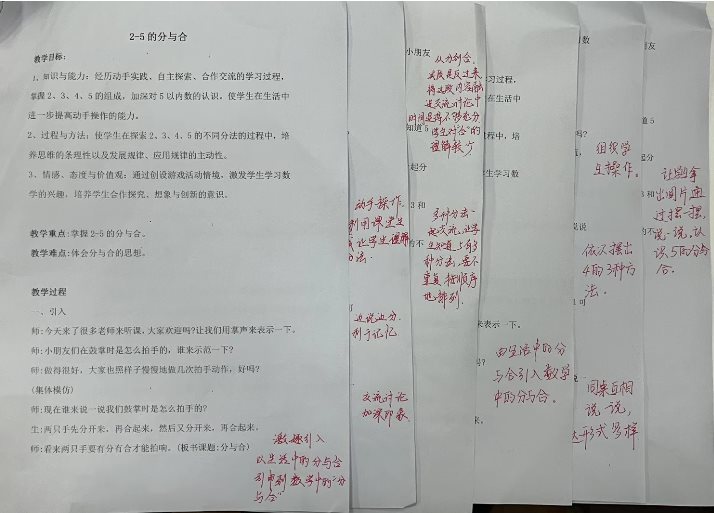 2-5的分与合
教学目标:
1、知识与能力: 经历动手实践、自主探索、合作交流的学习过程,
掌握2、3、4、5的组成, 加深对5以内数的认识, 使学生在生活中
进一步提高动手操作的能力。
2、过程与方法: 使学生在探索2、3、4、5的不同分法的过程中, 培
养思维的条理性以及发展规律、应用规律的主动性。
3、情感、态度与价值观: 通过创设游戏活动情境, 激发学生学习数
学的兴趣, 培养学生合作探究、想象与创新的意识。
教学重点: 掌握2-5的分与合。
教学难点: 体会分与合的思想。
教学过程
一、引入
师: 今天来了很多老师来听课, 大家欢迎吗?让我们用掌声来表示一下。
师: 小朋友们在鼓掌时是怎么拍手的, 谁来示范一下?
师: 做得很好, 大家也照样子慢慢地做几次拍手动作, 好吗?
(集体模仿)
师: 现在谁来说一说我们鼓掌时是怎么拍手的?
生: 两只手先分开来, 再合起来, 然后又分开来, 再合起来。
师: 看来两只手要有分有合才能拍响。(板书课题: 分与合)
激趣引入
以生活中的分与合
引申到数学中的“分
与合”
动手操作,
利用课堂生
让学生理解
方法.
边说边分.
利于记忆
交流讨论
加深印象.
小朋友
知道5
起分
3和
从分到合.
流讨论中
时间
学生对“合”的
理解较少
多种分法一
让学
生知道5有3
种分法,要不
重复,按顺序
地排列.
习过程,
在生活中
程中, 培
学生学习数
来表示一下。
由生活中的分
与合引入数学
中的分与合.
数
吗?
组织学
生操作.
说说
依次摆出
4的3种方
法.
可
同桌互相
说一说,
达形式多样
友
道5
分
3和
的不
让学生拿
出图片通
过摆一摆,
说一说,认
识5的分与
合.